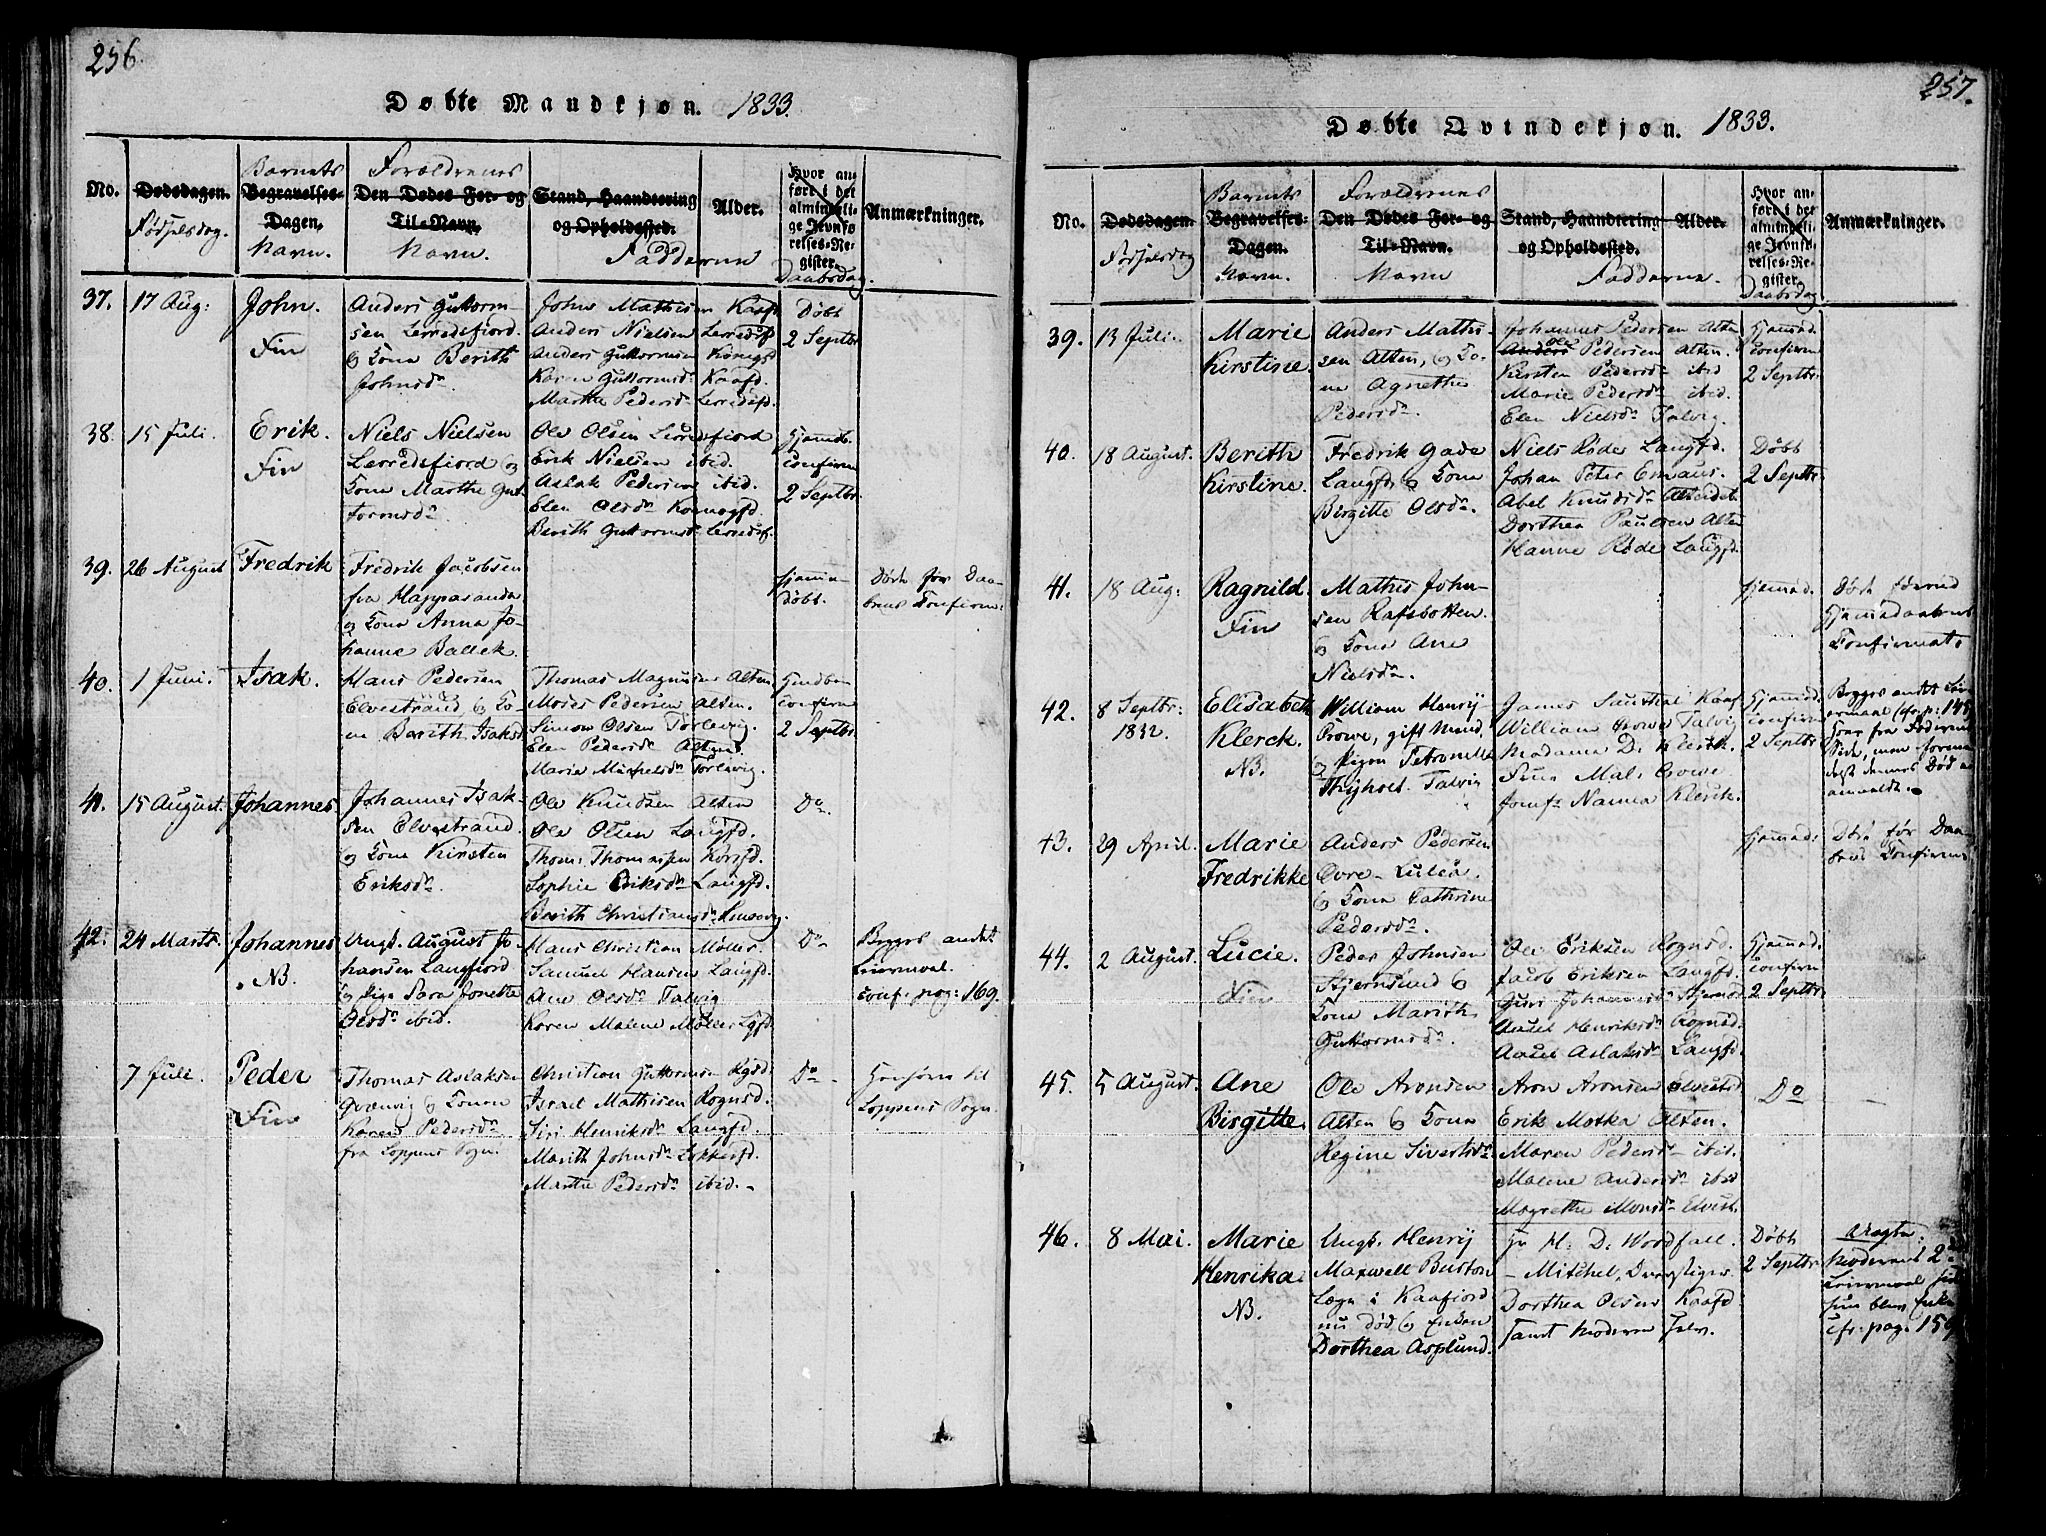 256.
Døbte Mandkjøn. 1833.
No.
Dødsdagen.
Fødselsdag.
Barnets
Begravelses-
Dagen.
Navn.
Forældrenes
Den Dødes For- og
Til-Navn.
Navn.
Stand, Haandtering
og Opholdssted.
Fadderne
Alder.
Hvor an-
ført i det
alminneli-
ge Jevnfø-
relses-Re-
gister.
Daabsdag.
Anmærkninger.
37. 17 Aug:
John.
Fin
Anders Guttorm-
sen Lerredsfjord.
og Kona Berith
Johnsdr.
John Mathisen Kaafd
Anders Nielsen Lerredsfd
Anders Guttormsen
Karen Guttormsdr Kaafd.
Marthe Pedersdr Lerredsfd.
Døbt
2 Septbr
38. 15 Juli.
Erik.
Fin
Niels Nielsen
Lerredsfiord og
Kona Marthe Gut-
tormsdr.
Ole Olsen Lerredsfiord
Erik Nielsen ibid.
Aslak Pedersen ibid.
Elen Olsdr
Berith Guttormsdr Lerredsf.
Hjemdb.
confirm
2 Septbr
39. 26 August
Fredrik
Fredrik Jacobsen
fra Happaranda
og Kona Anna Jo-
hanne Ballek.
hjemme-
døbt.
Døde før Daa-
bens Confirm:
40. 1 Juni.
Isak.
Hans Pedersen
Elvestrand, og Ko-
na Berith Isaksd
Thomas Magnusen Alten.
Moses Pedersen Alten.
Simon Olsen Torlevig.
Elen Pedersdr Alten.
Maria Mickelsdr Torlevig.
confirm
2 Septbr
41. 15 August.
Johannes
Johannes Isak-
sen Elvestrand.
og Kona Kirsten
Eriksdr.
Ole Knudsen Alten
Ole Olsen Langfd.
Thom: Thomassen Korsfd.
Sophie Eriksdr Langfd.
Berith Christiansdr
Do
42. 24 Marts.
Johannes
NB.
Ungk. August Jo-
hansen Langfiord
og Pige Sara Jonette
Olsdr ibid.
Hans Christian Møller
Samuel Hansen Langfd.
Ane Olsdr Talvig
Karen Malene Møller Lgfd.
Do
Begges andet
Leiermaal.
conf: pag: 169.
7 Juli.
Peder
Fin
Thomas Aslaksen
og Konen
Karen Pedersdr
fra Loppens Sogn.
Christian Guttormsen Rgsd.
Israel Mathisen Rognsd.
Siri Henriksdr Langfd.
Marith Johnsdr
Marthe Pedersdr ibid.
Do
Henhører til
Loppens Sogn.
257.
Døbte Qvindekjøn. 1833.
No.
Dødsdagen.
Fødselsdag
Barnets
Begravelses-
Dagen.
Navn.
Forældrenes
Den Dødes For- og
Til-Navn.
Navn
Stand, Haandtering
og Opholdssted.
Fadderne.
Alder.
Hvor an-
ført i det
alminneli-
ge Jevnfø-
relses-Re-
gister.
Daabsdag
Anmærkninger.
39. 13 Juli.
Marie
Kirstine.
Anders Mathi-
sen Alten, og Ko-
na Agnethe
Pedersdr.
Johannes Pedersen Alten
Anders Ole Pedersen Alten.
Kirsten Pedersdr ibid
Marie Pedersdr ibid.
Elen Nielsdr Talvig
Hjemmd.
confirm
2 Septbr:
40. 18 August.
Berith
Kirstine.
Fredrik Gade
Langfd. og Kona
Birgitte Olsdr.
Niels Røde Langfd.
Johan Peter
Abel Knudsdr
Dorthea Paulsen Alten
Hanne Røde Langfd.
Døbt
2 Septbr
41. 18 Aug:
Ragnild.
Fin
Mathis John-
sen Rafsbotten.
og Kona Ane
Nielsdr.
Hjemmd.
Døde førend
Hjemmedaabens
Confirmat.
42. 8 Septbr:
1832.
Elisabeth
Klerck.
NB.
William Henry
Crowe, gift Mand,
og Pigen Petronelle
Thyholt. Talvig
James Kaaf
William Crowe Talvig
Madame D. Klerck.
Crowe
Jomf: Nanna Klerck.
Hjemmd.
confirm
2 Septbr
Begges andet Lei-
ermaal
43. 29 April.
Marie
Fredrikke
Anders Pedersen
Øvre-Luleå.
og Kona Cathrine
Pedersdr.
Hjemmd:
Død før Daa-
bens Confirm:
44. 2 August.
Lucie.
Fin
Peder Johnsen
Stjernsund og
Kona Marith
Guttormsdr.
Ole Eriksen Rognsd.
Jacob Eriksen Langfd.
Guri Johannesdr Stjernsd
Henriksdr Rognsd.
Aslaksdr Langfd.
Hjemmd.
confirm
2 Septbr:
45. 5 August.
Ane
Birgitte.
Ole Aronsen
Alten og Kona
Regine Sivertsdr
Aron Aronsen
Erik Motka Alten.
Maren Pedersdr ibid.
Malene Andersdr ibid
Magrethe Monsdr Elvest.
Do
46. 8 Mai.
Marie
Henrika.
NB.
Ungk. Henry
Maxwell Burton
Læge i Kaafiord
nu død og Enken
Dorthea Asplund.
Hr H: D: Woodfall.
- Mitchel,
Dorthea Olsen Kaafd.
samt Moderen selv.
Døbt
2 Septbr
Moderens 2det
Leiermaal
hun blev Enke
cfr. pag. 159